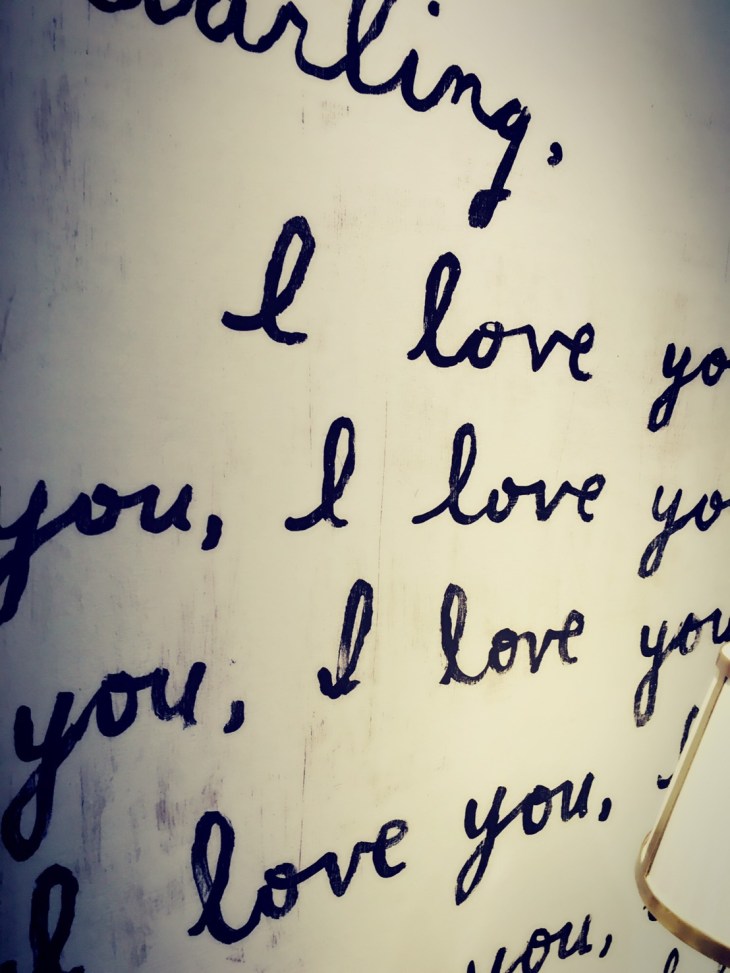 Darling,
I love yo
you, I love yo
you, I love you
I love you,
you,